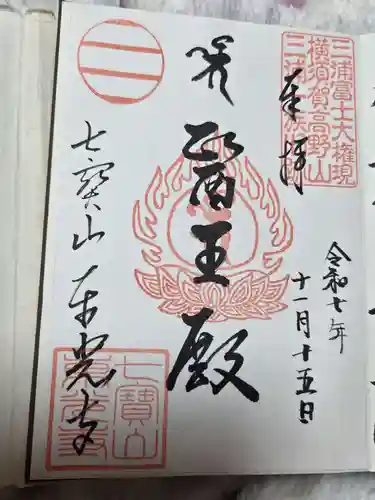 三浦富士大権現
横須賀高野山
三浦一族
奉拝
令和七年
十一月十五日
医王殿
七寳山
東光寺
七寳山
東光寺